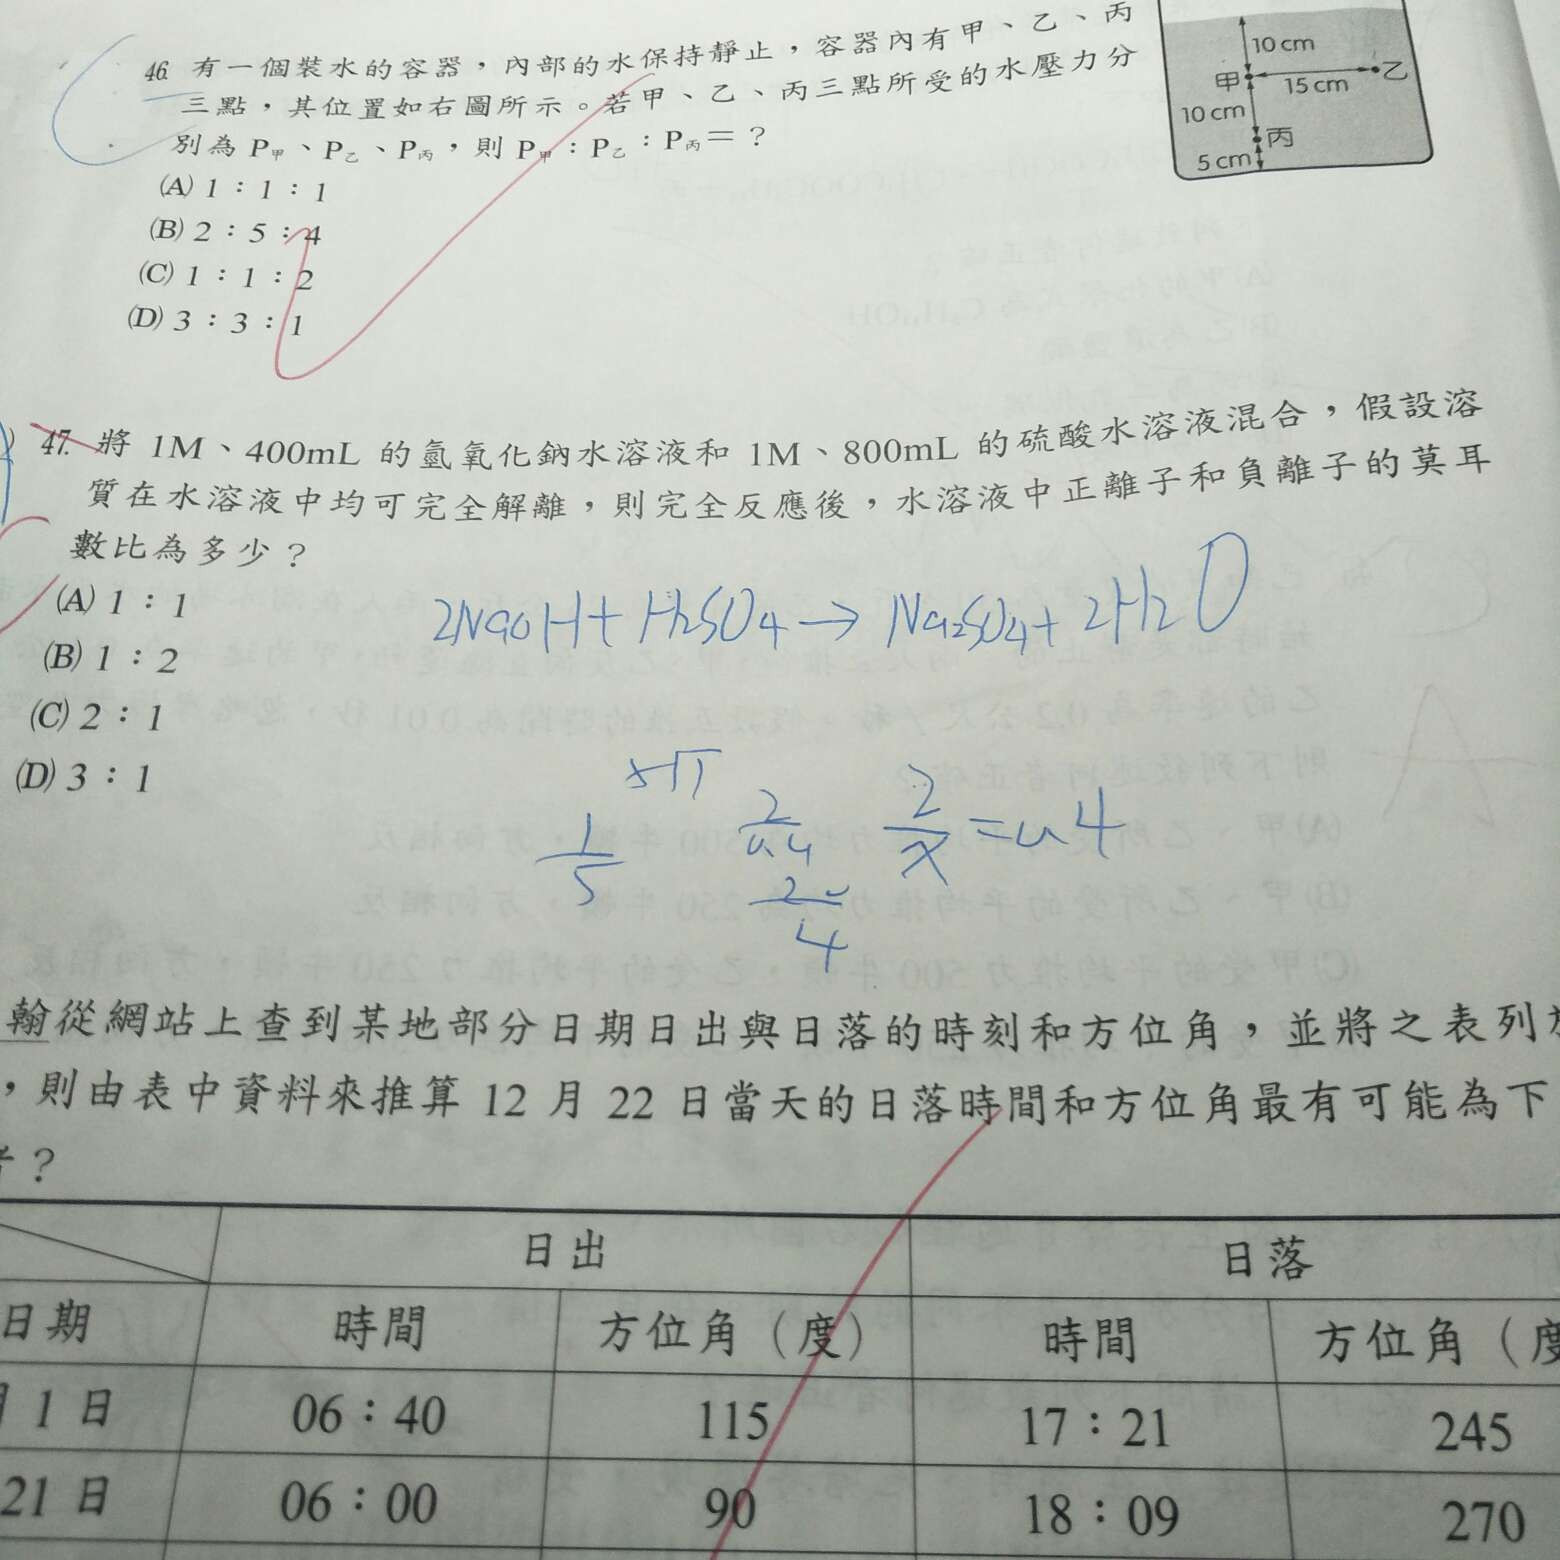 46. 有一個裝水的容器,內部的水保持靜止,容器內有甲、乙、丙
三點,其位置如右圖所示。若甲、乙、丙三點所受的水壓力分
別為 P甲、P乙、P丙,則 P甲:P乙:P丙=?
(A) 1:1:1
(B) 2:5:4
(C) 1:1:2
(D) 3:3:1
10 cm
甲
乙
15 cm
10 cm
丙
5 cm
47. 將 1M、400mL 的氫氧化鈉水溶液和 1M、800mL 的硫酸水溶液混合,假設溶
質在水溶液中均可完全解離,則完全反應後,水溶液中正離子和負離子的莫耳
數比為多少?
(A) 1:1
(B) 1:2
(C) 2:1
(D) 3:1
2NaOH + H2SO4 → Na2SO4 + 2H2O
5√1
1/5
2/0.4
2/x = 0.4
20/4
翰從網站上查到某地部分日期日出與日落的時刻和方位角,並將之表列
,則由表中資料來推算 12 月 22 日當天的日落時間和方位角最有可能為下
?
日出 日落
日期 時間 方位角(度) 時間 方位角(度
1 日 06:40 115 17:21 245
21 日 06:00 90 18:09 270